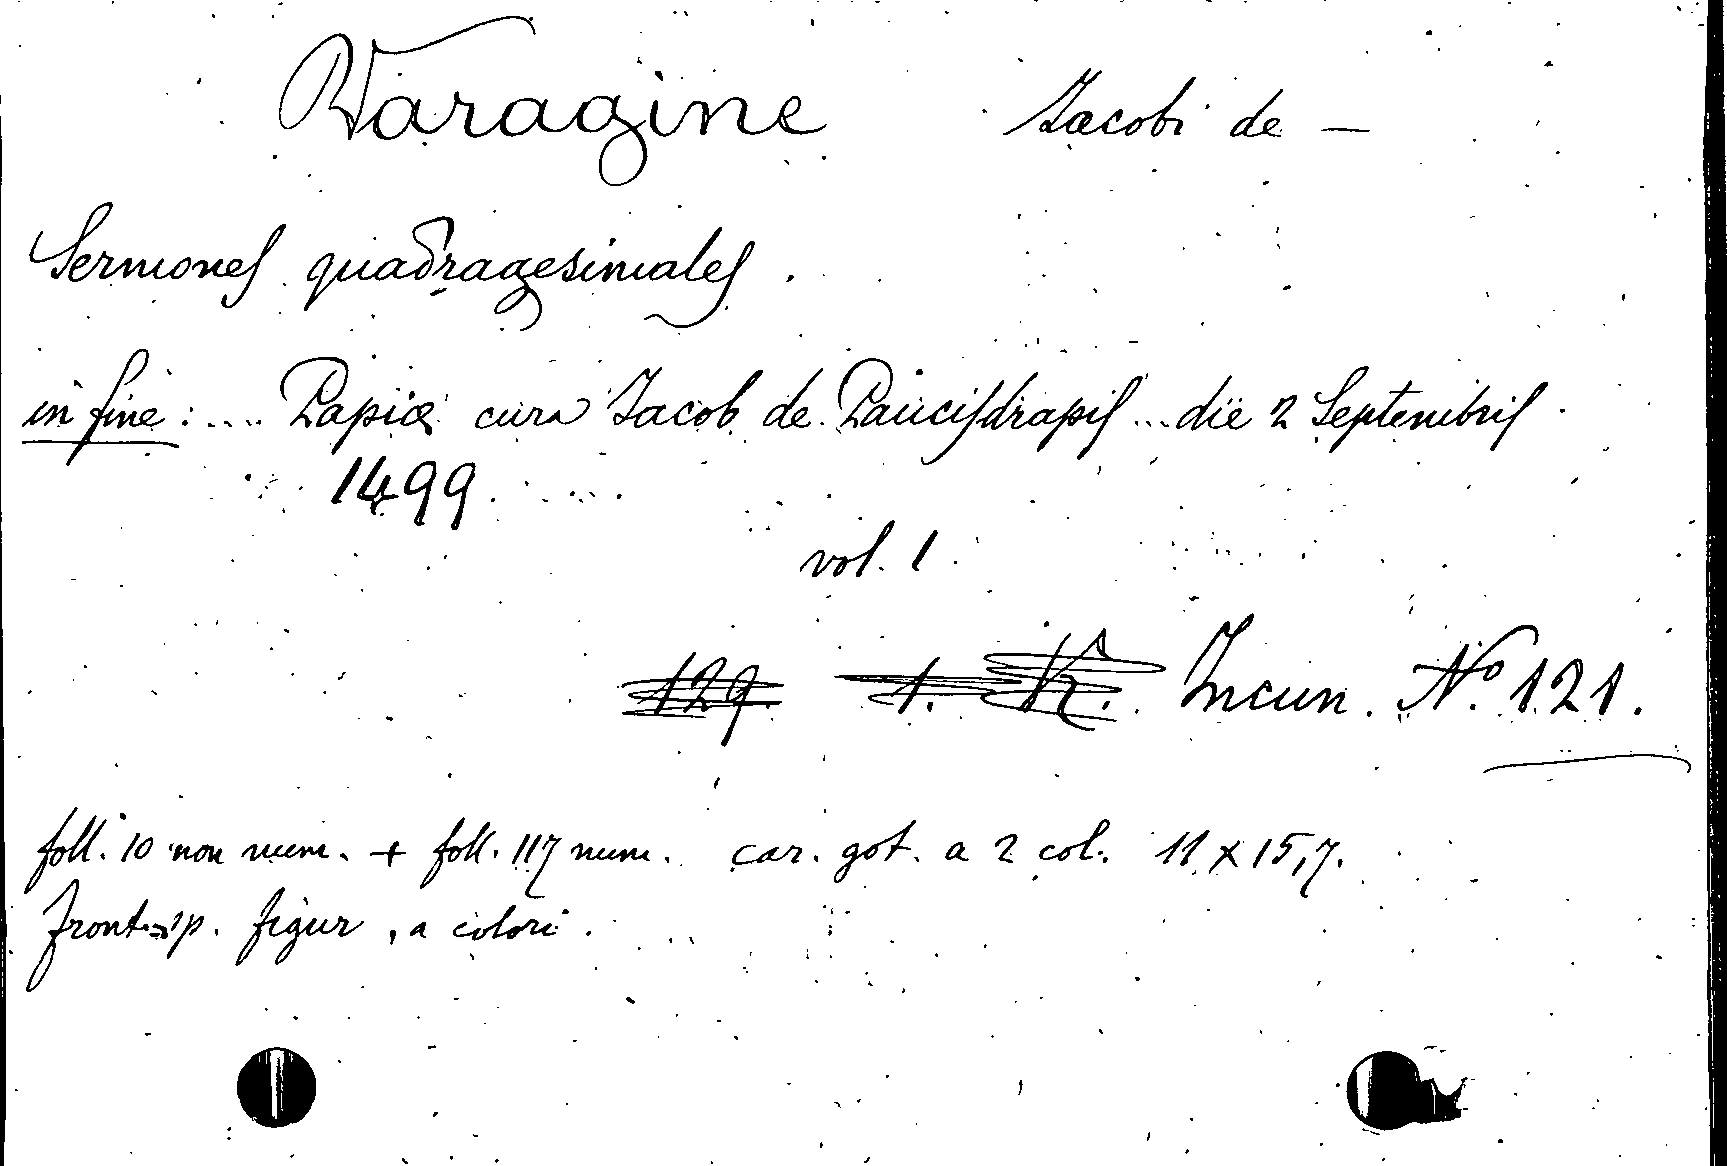 Varagine Jacobi de —
Sermones quadragesimales.
in fine: .... Papiæ cura Jacob de Paucisdrapis ... die 2 Septembris
1499.
vol. 1
129. 1. K. Incun. Nº 121.
foll. 10 non num. + foll. 117 num. car. got. a 2 col. 11 x 15,7.
Frontesp. figur, a colori.